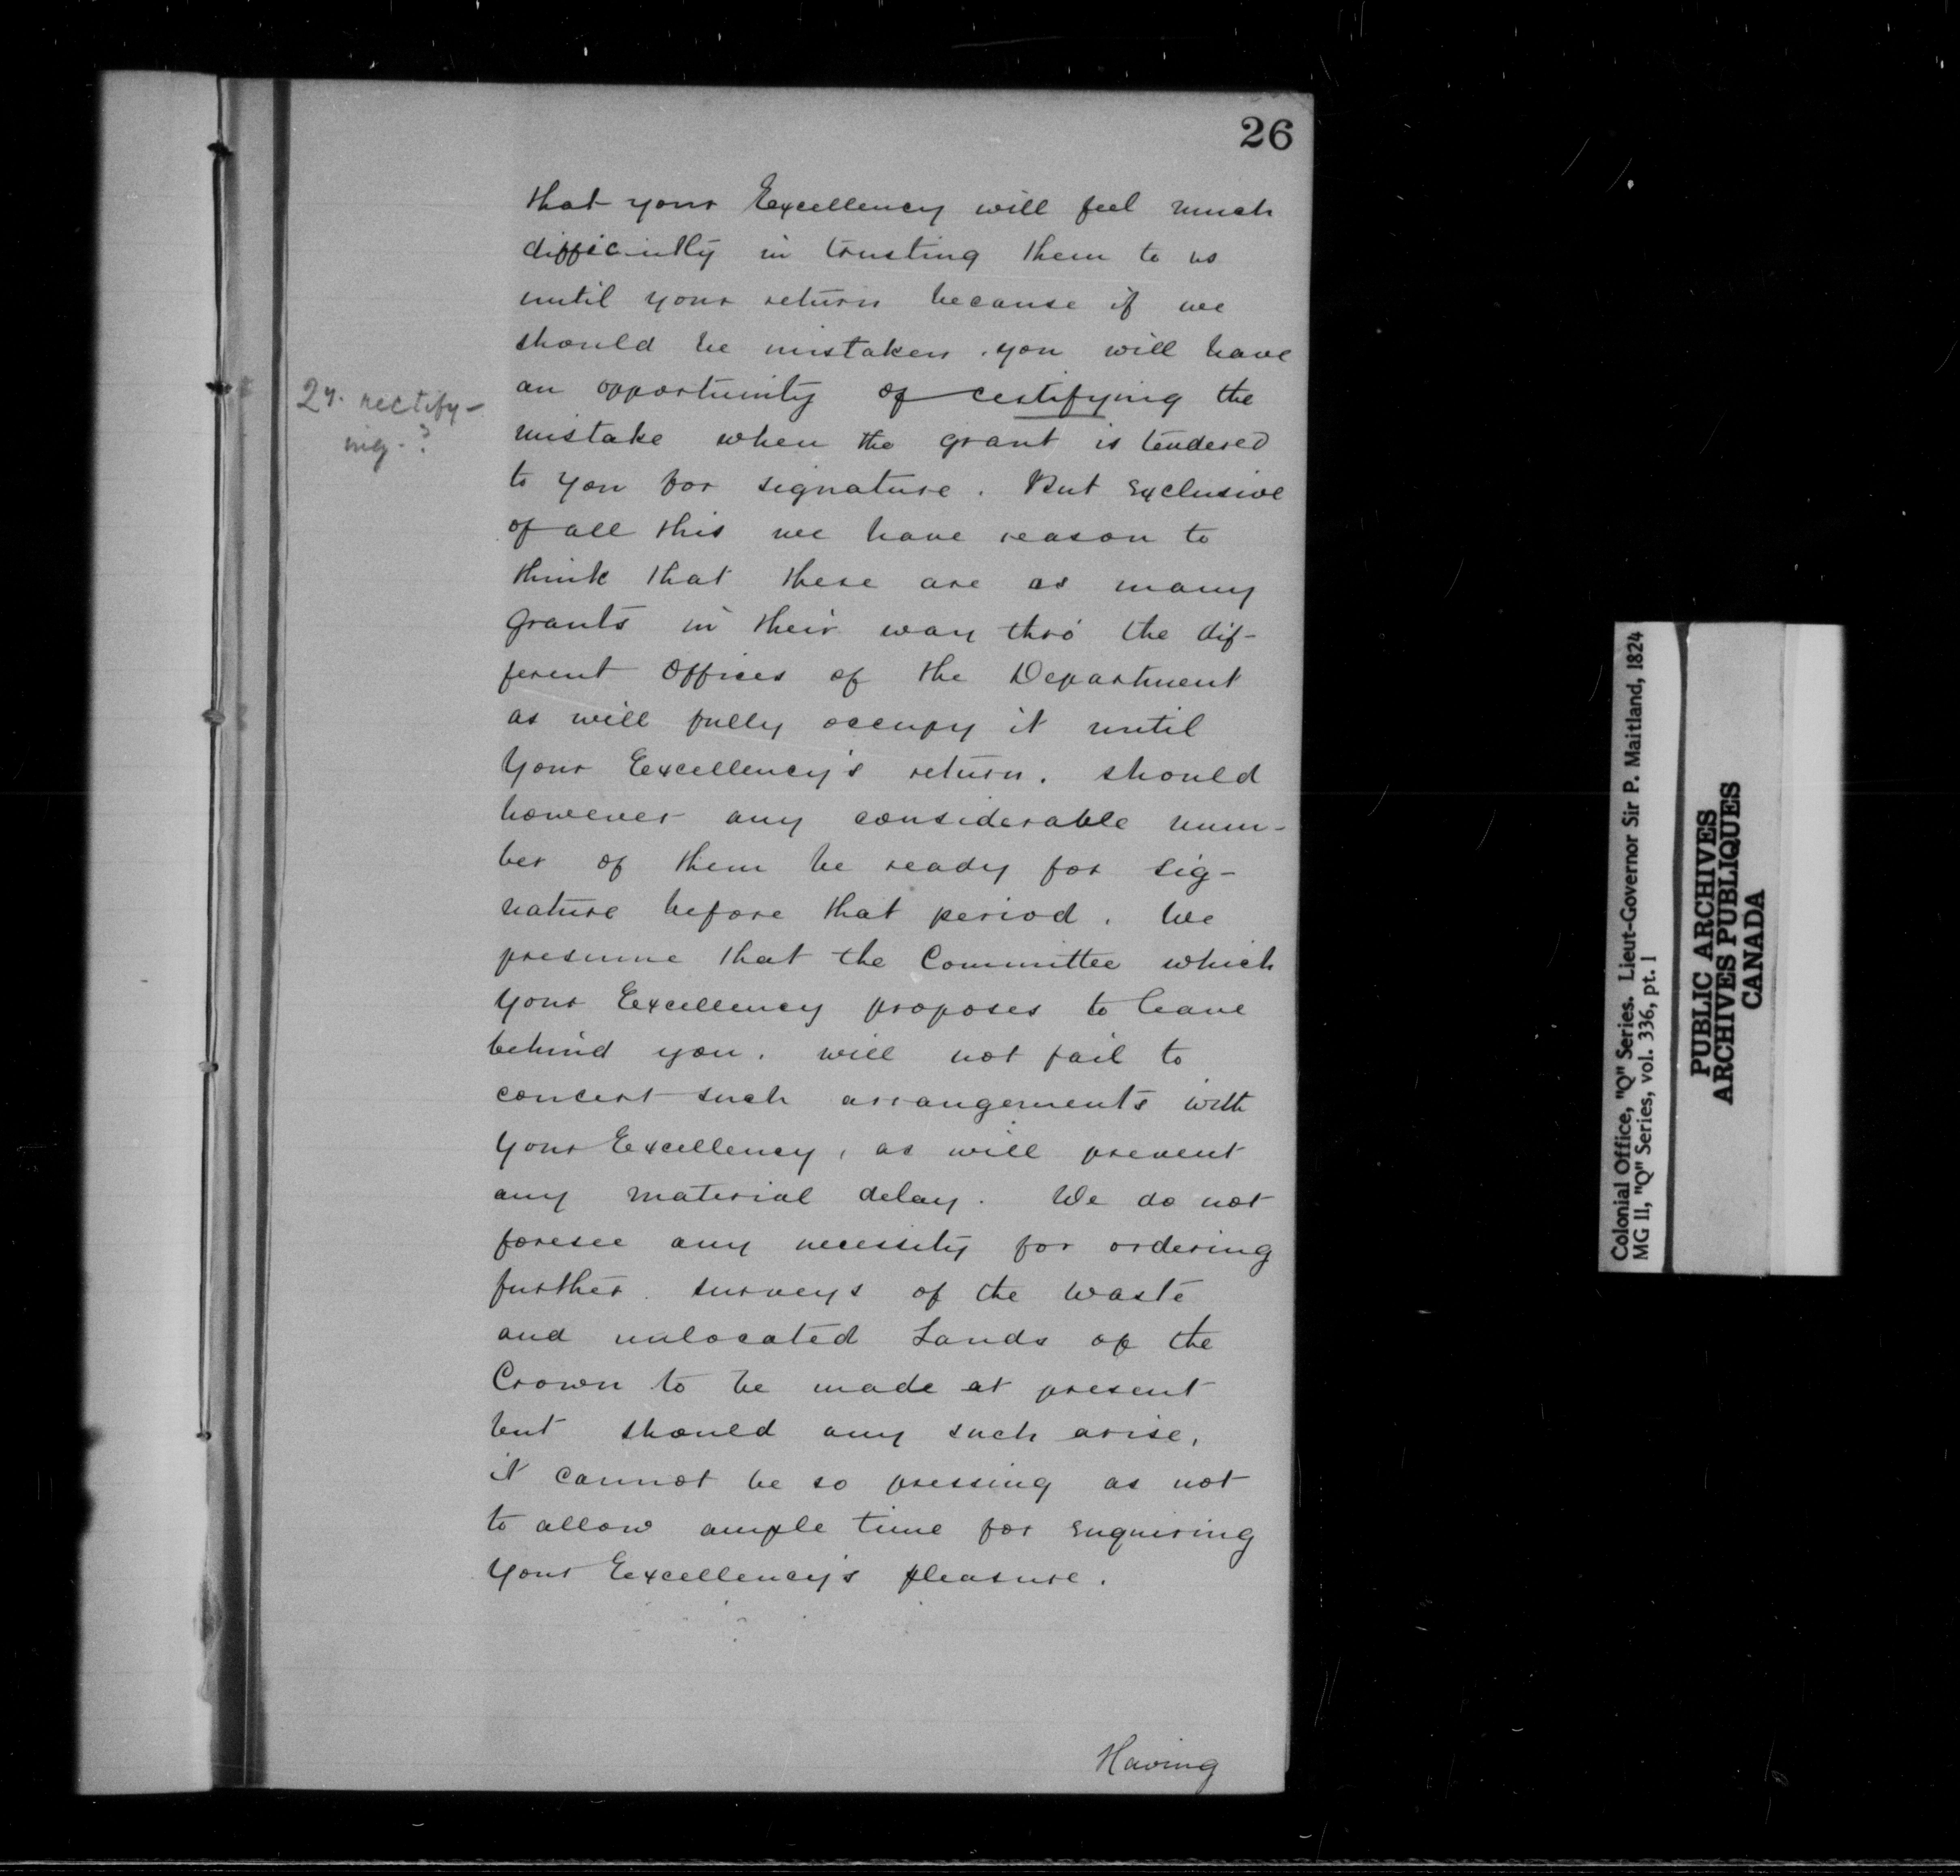 26
that your Excellency will feel much
difficulty in trusting them to us
until your return because if we
should be mistaken. you will have
an opportunity of certifying the
2y. rectify-
ing.?
mistake when the grant is tendered
to you for signature. But exclusive
of all this we have reason to
think that there are as many
grants in their way thro' the dif-
ferent Offices of the Department
as will fully occupy it until
Your Excellency's return. should
however any considerable num-
ber of them be ready for sig-
nature before that period. We
presume that the Committee which
Your Excellency proposes to leave
behind you. will not fail to
concert such arrangements with
Your Excellency, as will prevent
any material delay. We do not
foresee any necessity for ordering
further surveys of the waste
and unlocated Lands of the
Crown to be made at present
but should any such arise,
it cannot be so pressing as not
to allow ample time for enquiring
Your Excellency's pleasure.
Having
Colonial Office, "Q" Series. Lieut-Governor Sir P. Maitland, 1824
MG 11, "Q" Series, vol. 336, pt. 1
PUBLIC ARCHIVES
ARCHIVES PUBLIQUES
CANADA